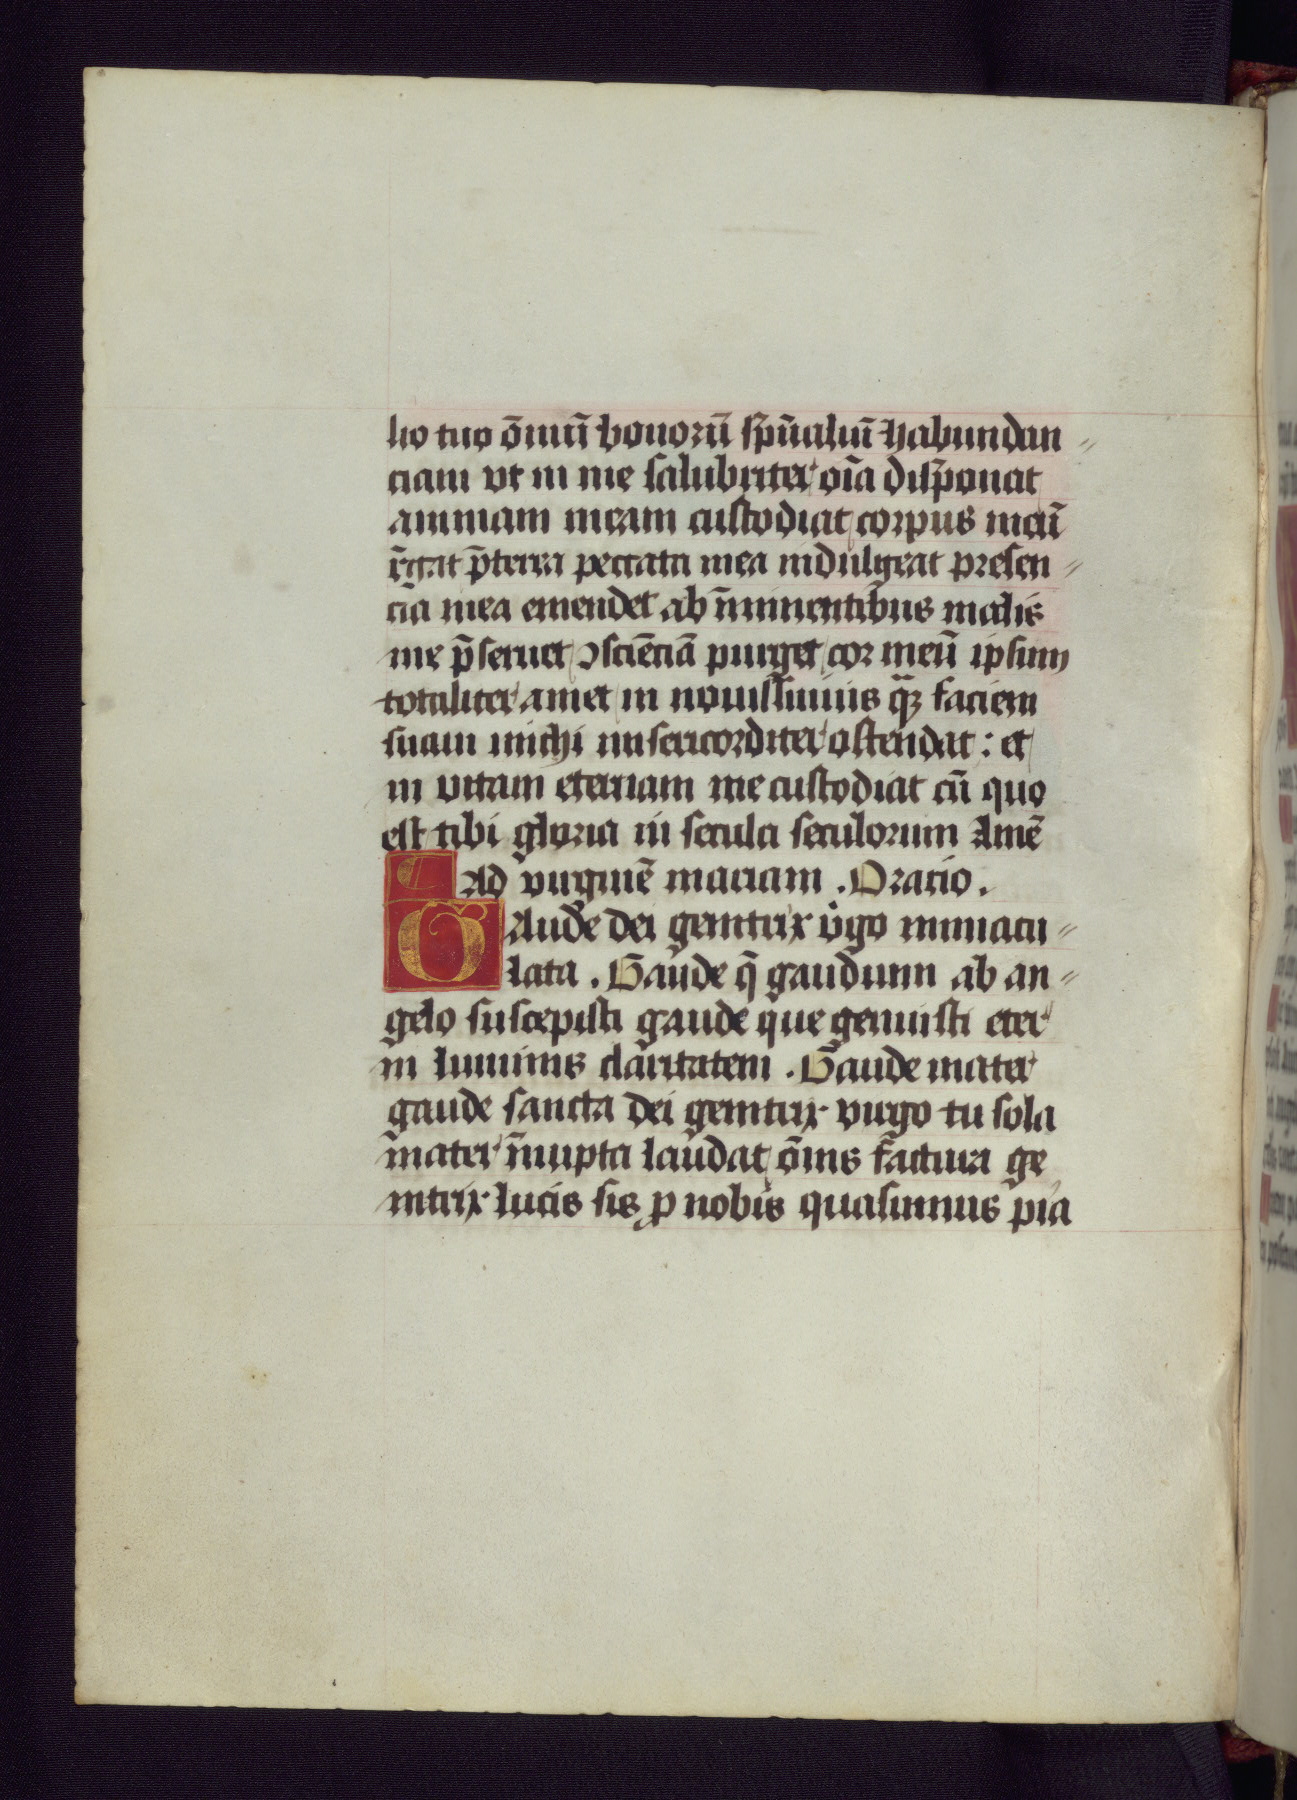 lio tuo o̅niu̅ bonoru̅ sp̅ualiu̅ habundan
ciam vt in me salubriter oi̅a disponat
animam meam custodiat corpus meu̅
r̅gat p̅terita peccata mea indulgeat presen
cia mea emendet ab i̅minentibus malis
me p̅seruet ꝯscie̅cia̅ purget cor meu̅ ipsum
totaliter amet in nouissimis q̅ꝫ faciem
suam michi misericorditer ostendat : et
in vitam eternam me custodiat cu̅ quo
est tibi gloria in secula seculorum Ame̅
¶ Ad virgine̅ mariam . Oratio .
GAude dei genitrix v̊go inmacu
lata . Gaude q̅ gaudium ab an
gelo suscepisti gaude que genuisti eter
ni luminis claritatem . Gaude mater
gaude sancta dei genitrix virgo tu sola
mater i̅nupta laudat o̅nis factura ge
nitrix lucis sis ꝓ nobis quasumus pia